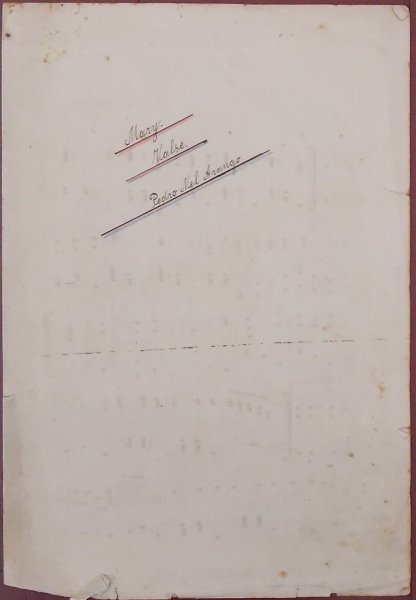 Mary.
Valse.
Pedro Nel Arango